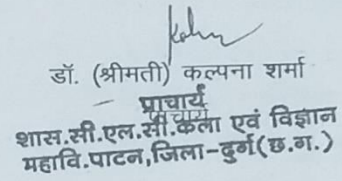 डॉ. (श्रीमती) कल्पना शर्मा
प्राचार्य
प्राचार्य
शास.सी.एल.सी.कला एवं विज्ञान
महावि.पाटन,जिला-दुर्ग(छ.ग.)